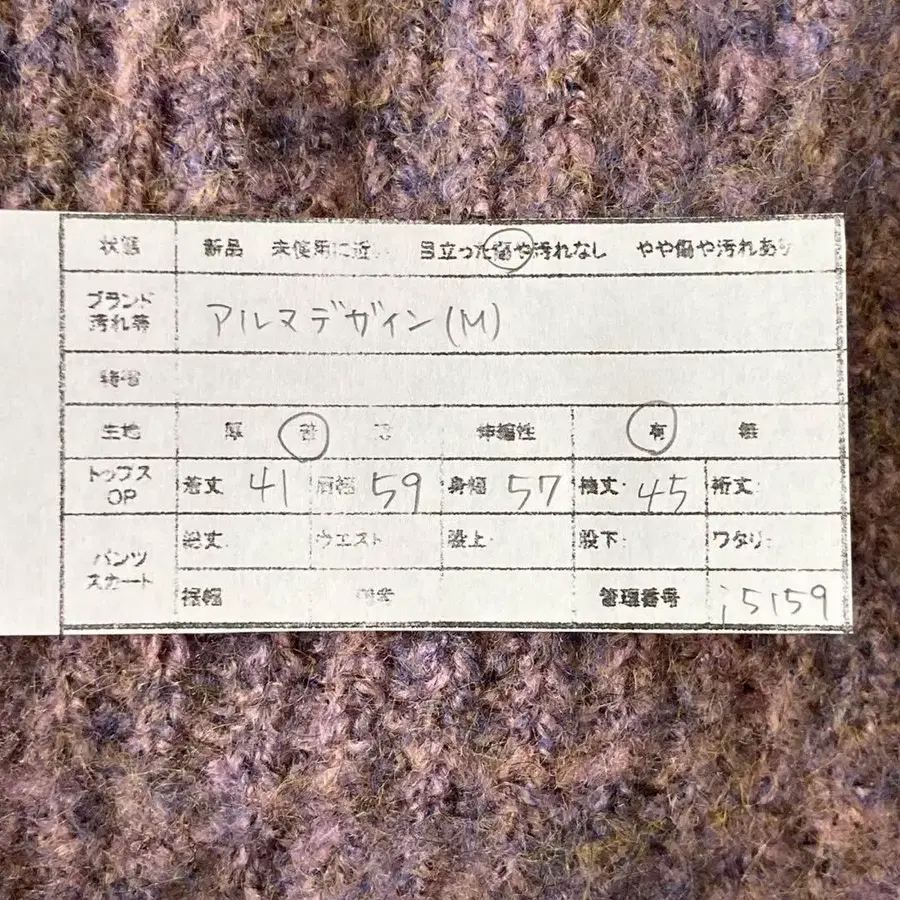 状態 新品 未使用に近い 目立った傷や汚れなし やや傷や汚れあり
ブランド
汚れ等 アルマデザイン(M)
生地 厚 普 伸縮性 有 無
トップス
OP 着丈 41 肩幅 59 身幅 57 袖丈 45 裄丈
パンツ
スカート 総丈 ウエスト 股上 股下 ワタリ
裾幅 管理番号 i5159